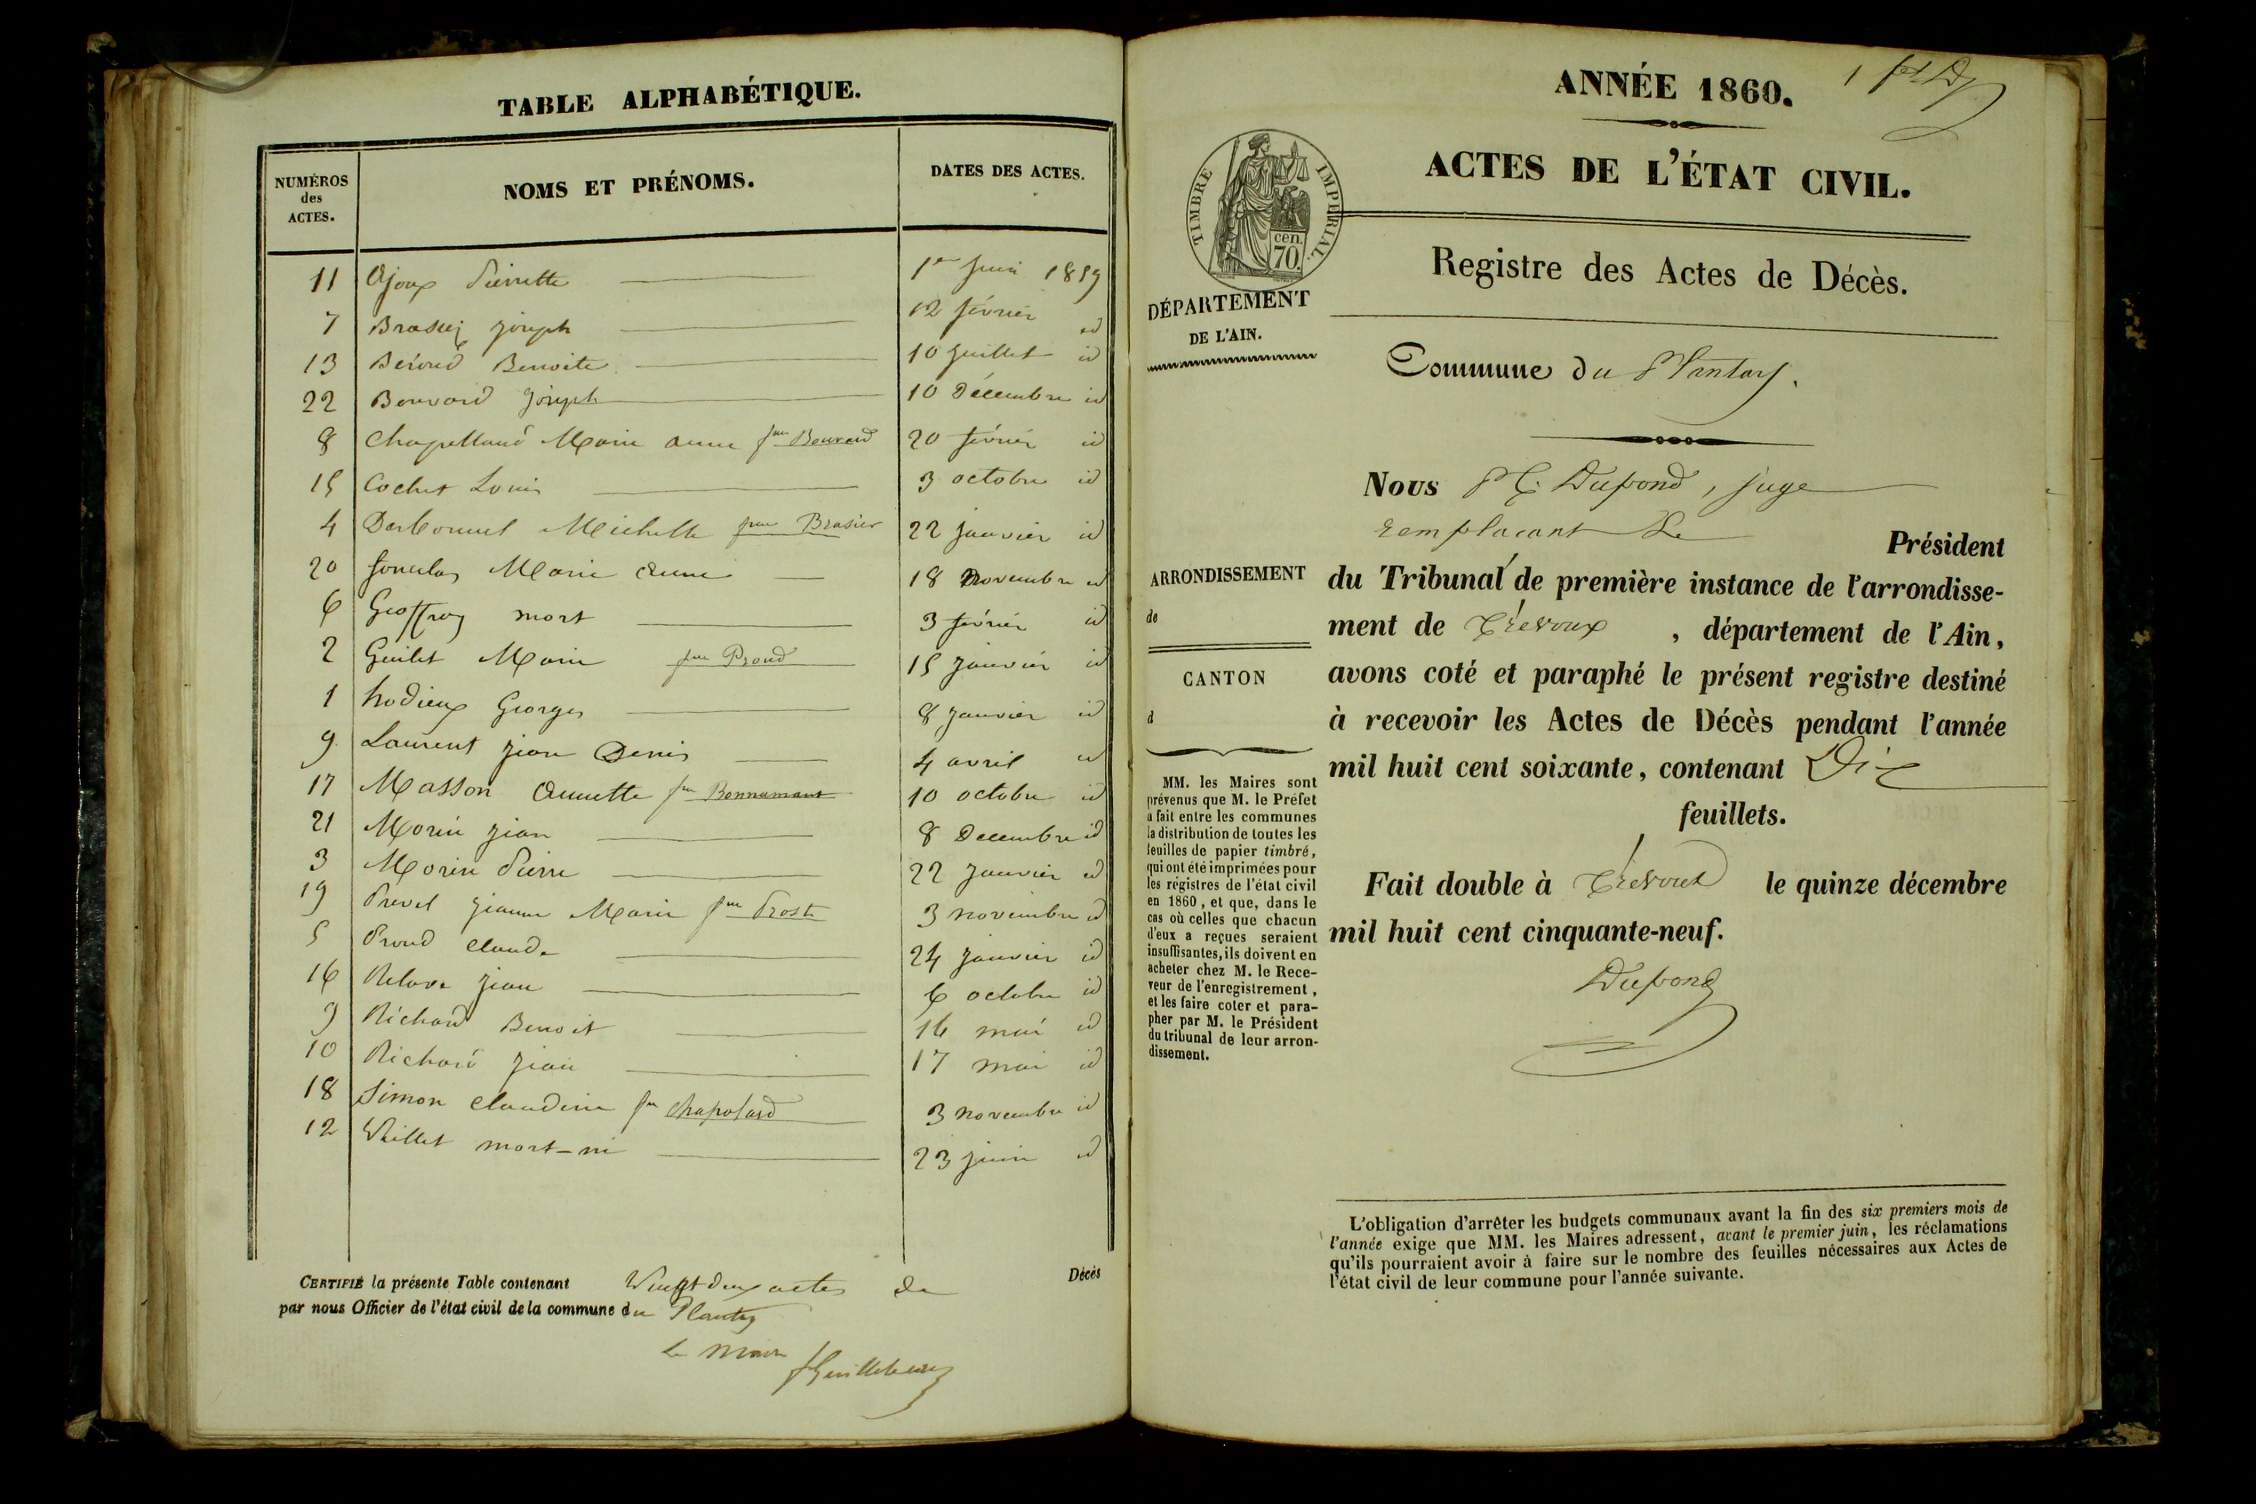 TABLE ALPHABÉTIQUE.
NUMÉROS des ACTES. NOMS ET PRÉNOMS. DATES DES ACTES.
11 Ajoux Pierrette 1er Juin 1859
7 joseph 12 février id
13 Béroud Benoite 10 Juillet id
22 Bouvard Joseph 10 Décembre id
8 Marie anne fme Bouvard 20 février id
15 Cochet Louis 3 octobre id
4 Michelle fme Brasier 22 janvier id
20 Marie Anne 18 Novembre id
6 Geoffray mort 3 février id
2 Guilet Marie fme Proud 15 janvier id
1 hodieux Georges 8 janvier id
9 Laurent jean Denis 4 avril id
17 Masson Annette fme Bonnamant 10 octobre id
21 Morin jean 8 Decembre id
3 Morin Pierre 22 janvier id
19 Prevel jeanne Marie fme Prost 3 novembre id
5 Proud claude 24 janvier id
16 jean 6 octobre id
9 Richard Benoit 16 mai id
10 Richard jean 17 mai id
18 Simon claudine fme chapolard 3 novembre id
12 mort-né 23 juin id
CERTIFIÉ la présente Table contenant Vingt deux actes de Décès
par nous Officier de l'état civil de la commune du Plantay
Le Maire
1 f
ANNÉE 1860.
ACTES DE L'ÉTAT CIVIL.
TIMBRE IMPÉRIAL.
cen.
70.
Registre des Actes de Décès.
DÉPARTEMENT
DE L'AIN.
Commune du Plantay.
Nous Dupond, juge
remplaçant Le Président
ARRONDISSEMENT
de
CANTON
d
du Tribunal de première instance de l'arrondisse-
ment de Trévoux, département de l'Ain,
avons coté et paraphé le présent registre destiné
à recevoir les Actes de Décès pendant l'année
mil huit cent soixante, contenant Dix
feuillets.
Fait double à Trévoux le quinze décembre
mil huit cent cinquante-neuf.
Dupond
MM. les Maires sont
prévenus que M. le Préfet
a fait entre les communes
la distribution de toutes les
feuilles de papier timbré,
qui ont été imprimées pour
les régistres de l'état civil
en 1860, et que, dans le
cas où celles que chacun
d'eux a reçues seraient
insuffisantes, ils doivent en
acheter chez M. le Rece-
veur de l'enregistrement,
et les faire coter et para-
pher par M. le Président
du tribunal de leur arron-
dissement.
L'obligation d'arrêter les budgets communaux avant la fin des six premiers mois de
l'année exige que MM. les Maires adressent, avant le premier juin, les réclamations
qu'ils pourraient avoir à faire sur le nombre des feuilles nécessaires aux Actes de
l'état civil de leur commune pour l'année suivante.